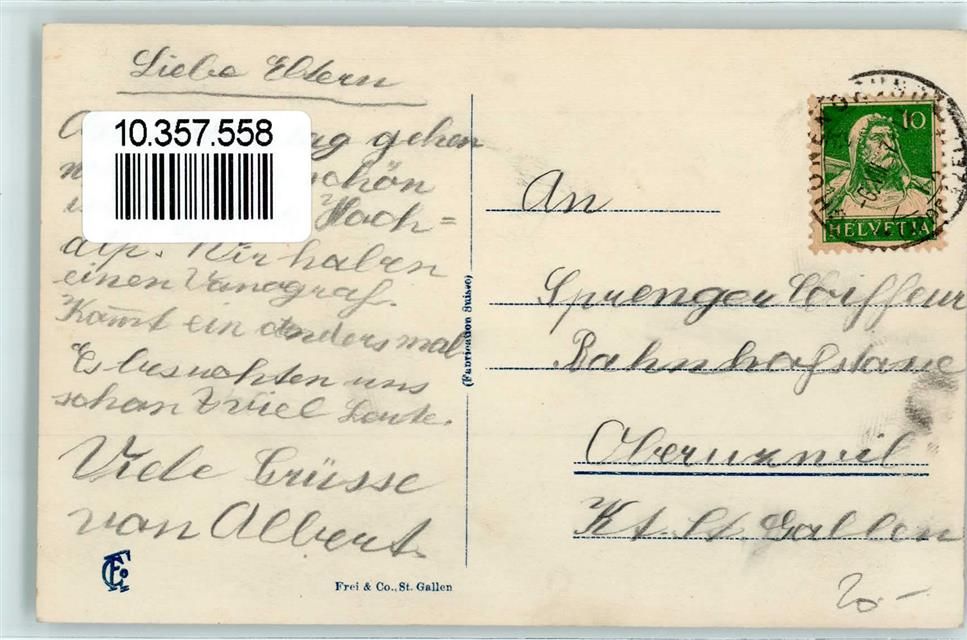 Liebe Eltern
10.357.558
gehen
schön
Hoch=
alp. Wir haben
einen Vanograf.
Kommt ein anders mal
Es besuchten uns
schon zviel Leute.
Viele Grüsse
von Albert.
Frei & Co., St. Gallen
(Fabrication Suisse)
10
HELVETIA
An
Sprenger Coiffeur
Bahnhofstasse
Oberuzwil
Kt. St. Gallen
20.-